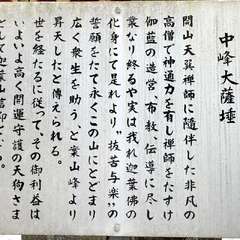 中峰大薩埵
開山天巽禅師に随伴した非凡の
高僧で神通力を有し禅師をたすけ
伽藍の造営布教伝導に尽し
業なり終るや実は我れ迦葉佛の
化身にて是れより〝抜苦与楽〟の
誓願をたて永くこの山にとどまり
広く衆生を助
葉山峰より
昇天したと伝えられる。
世を経たるに従って、その御利益は
いよいよ高く開運守護の天狗さま
として迦葉山信仰